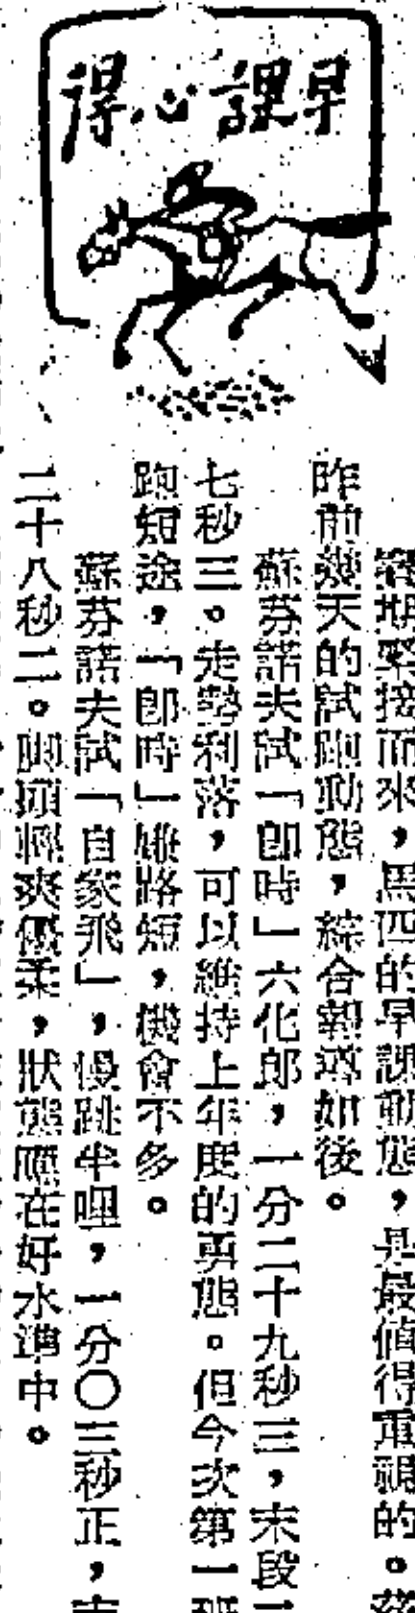 早課心得
賽期緊接而來，馬匹的早課動態，是最值得重視的。茲
昨前幾天的試跑動態，綜合報導如後。
蘇芬諾夫試「卽時」六化郎，一分二十九秒三，末段二
七秒三。走勢利落，可以維持上年度的勇態。但今次第一班
跑短途，「卽時」嫌路短，機會不多。
蘇芬諾夫試「自家飛」，慢跳半哩，一分〇三秒正，末
二十八秒二。脚頭輕爽優柔，狀態應在好水準中。